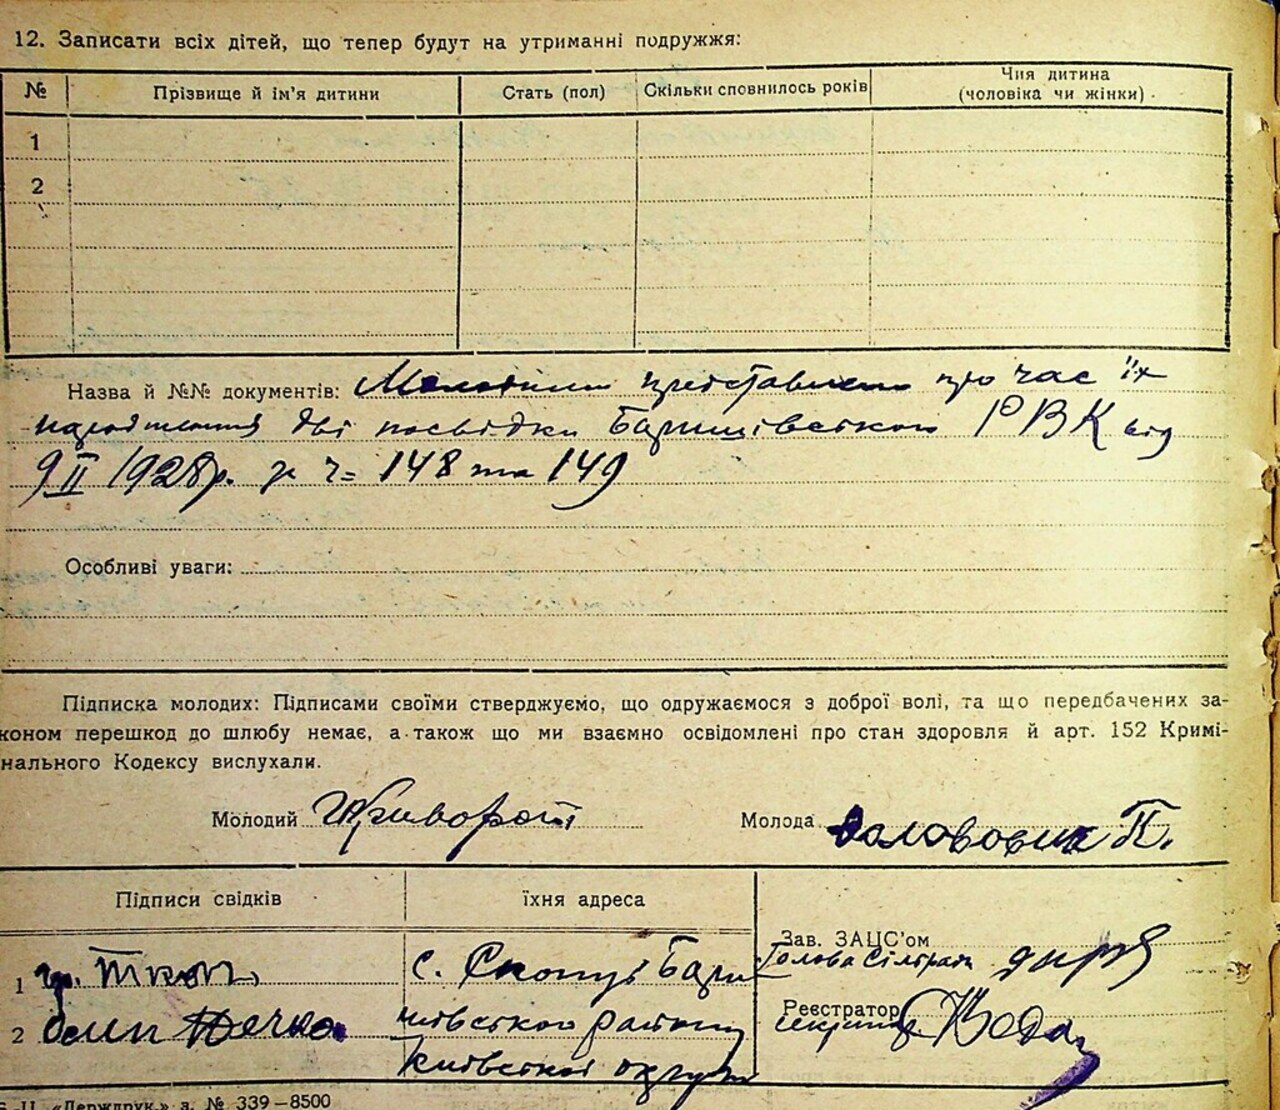 12. Записати всіх дітей, що тепер будут на утриманні подружжя:
№ Прізвище й ім'я дитини Стать (пол) Скільки сповнилось років Чия дитина
(чоловіка чи жінки)
1
2
Назва й №№ документів: представлено про час їх
народження дві посвідки Баришівського РВК від
9/II 1928р. за ч= 148 та 149
Особливі уваги:
Підписка молодих: Підписами своїми стверджуємо, що одружаємося з доброї волі, та що передбачених за-
коном перешкод до шлюбу немає, а також що ми взаємно освідомлені про стан здоровля й арт. 152 Кримі-
нального Кодексу вислухали.
Молодий Молода П.
Підписи свідків їхня адреса
Зав. ЗАЦС'ом
Голова Сільради
1 гр. с. Скопці Бари
Реєстратор
2 шівського району секретар
Київської округи
«Держдрук.» з. № 339—8500